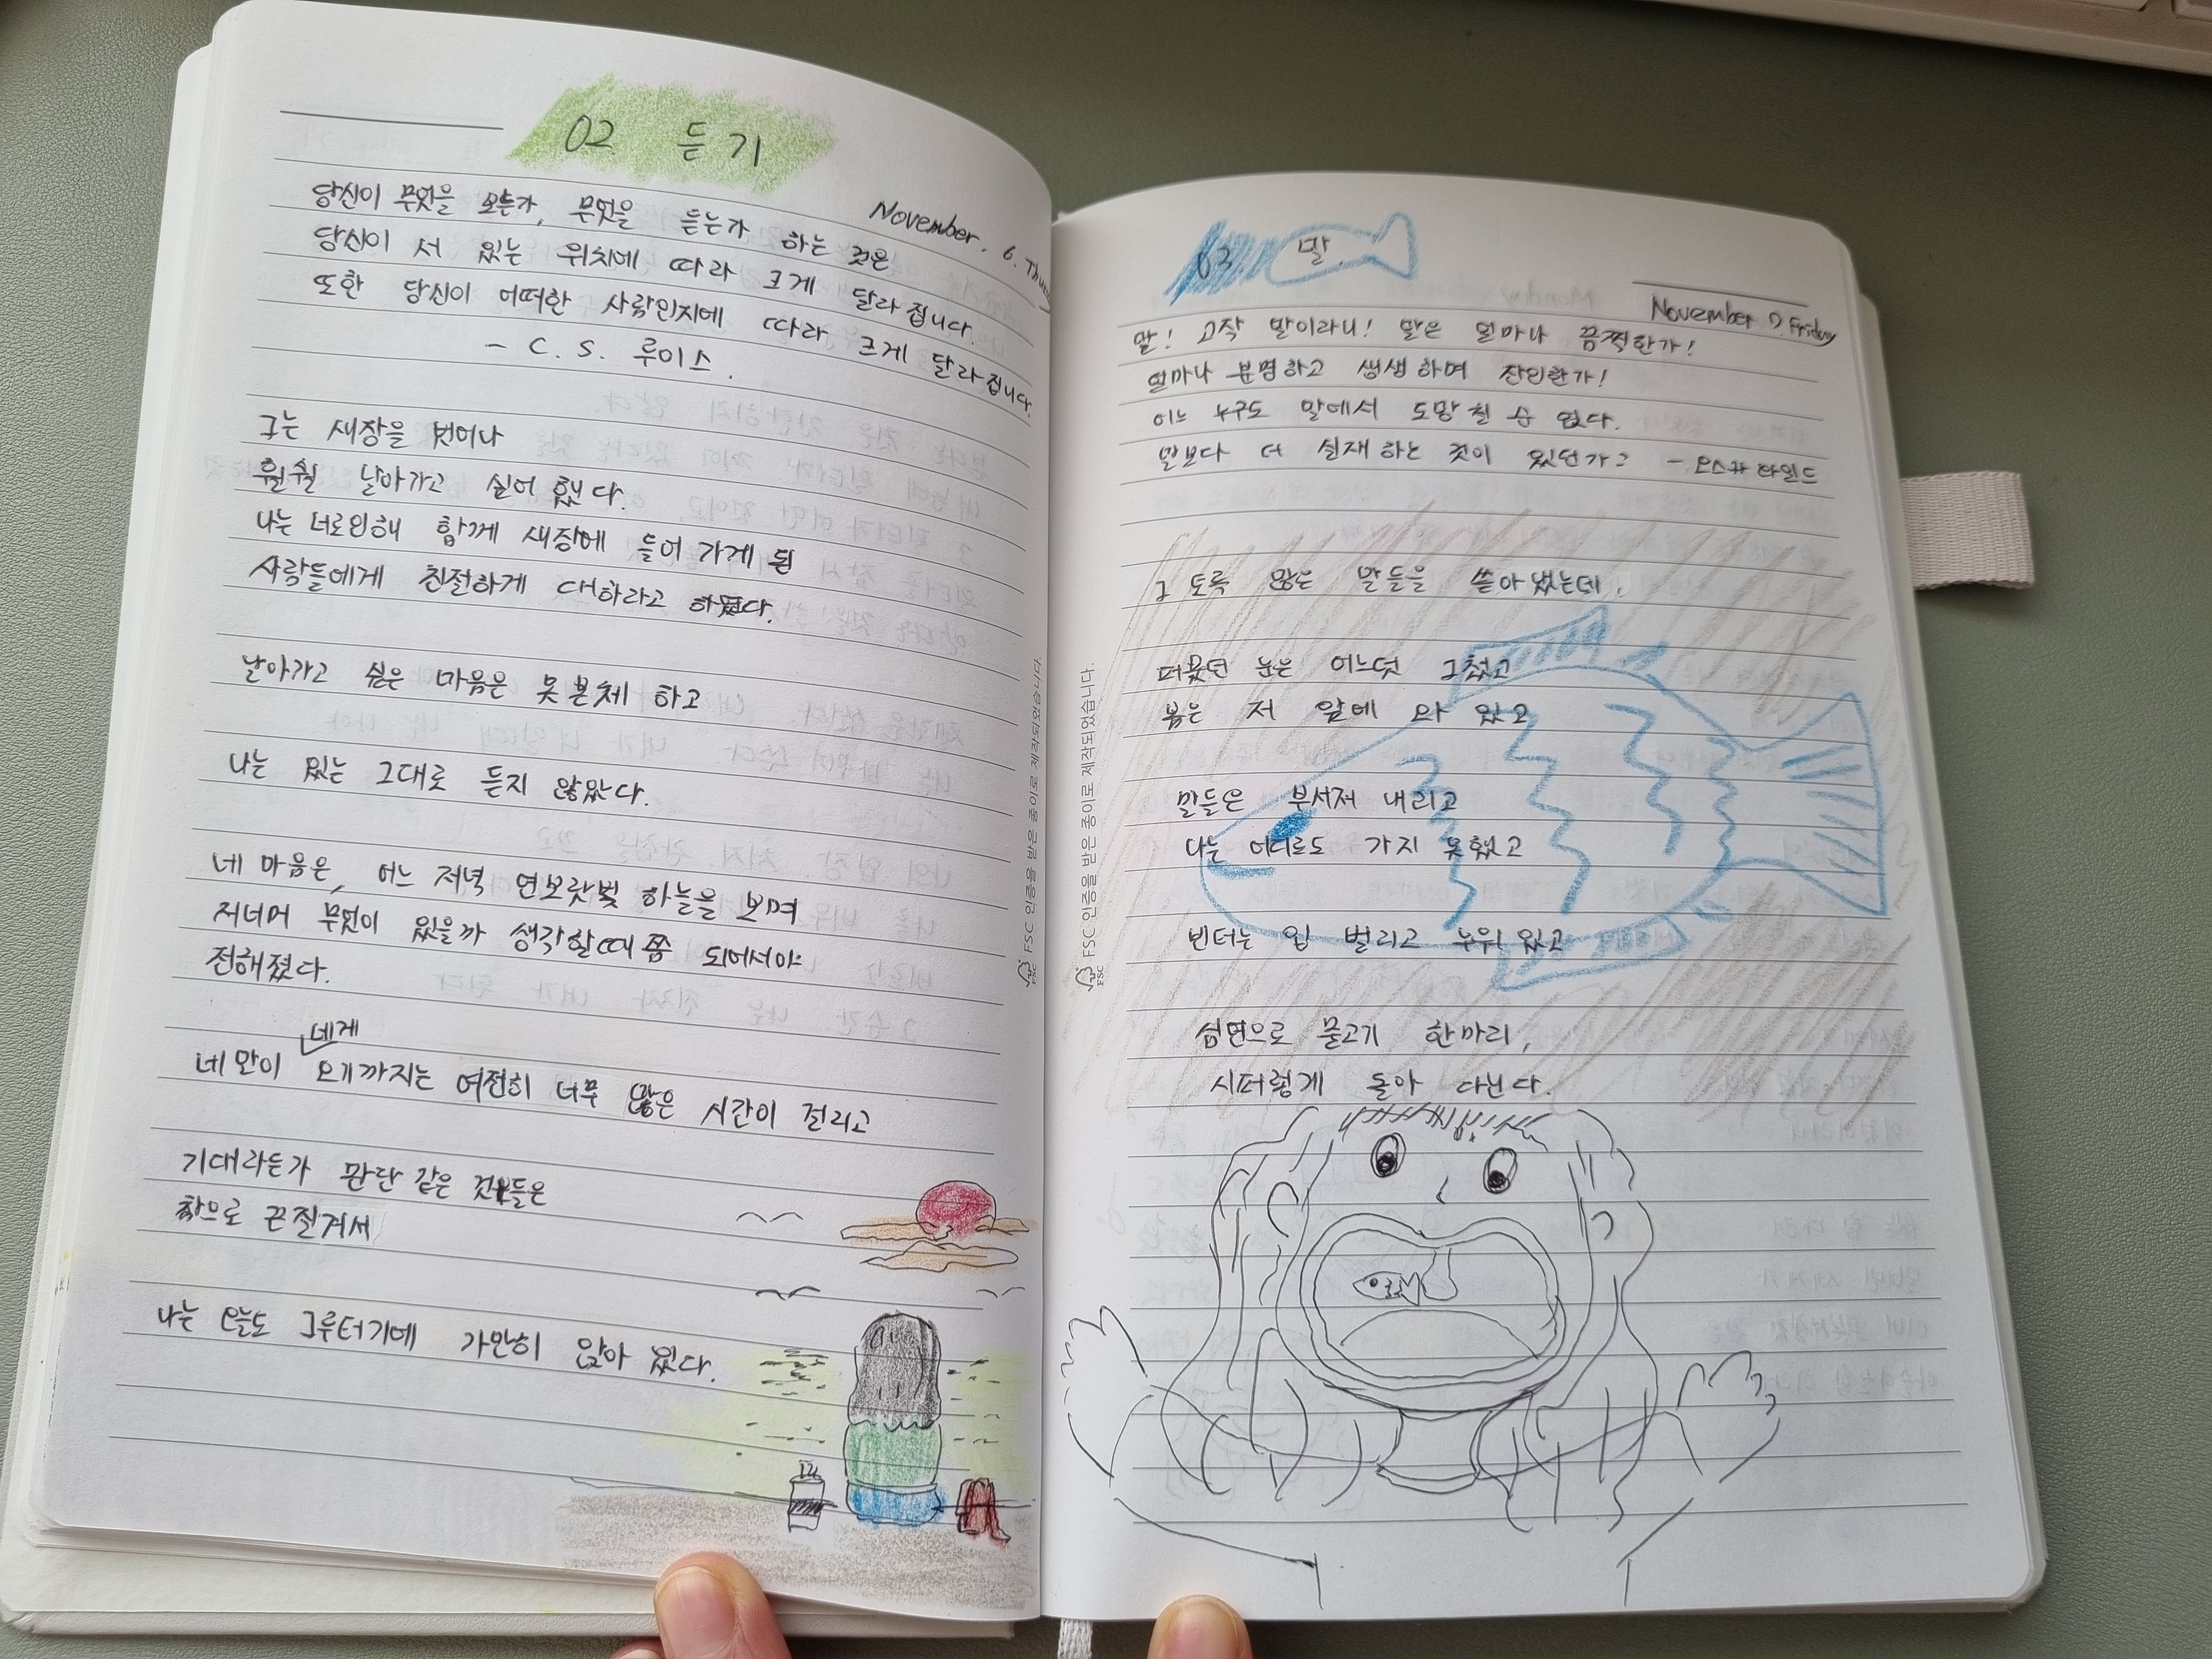 02. 듣기
November. 6. Thurs
당신이 무엇을 보는가, 무엇을 듣는가 하는 것은
당신이 서 있는 위치에 따라 크게 달라집니다.
또한 당신이 어떠한 사람인지에 따라 크게 달라집니다.
- C. S. 루이스.
그는 새장을 벗어나
훨훨 날아가고 싶어 했다.
나는 너로인해 함께 새장에 들어 가게 된
사람들에게 친절하게 대하라고 하였다.
날아가고 싶은 마음은 못본체 하고
나는 있는 그대로 듣지 않았다.
네 마음은, 어느 저녁 연보랏빛 하늘을 보며
저너머 무엇이 있을까 생각할때쯤 되어서야
전해졌다.
네게
네 말이 오기까지는 여전히 너무 많은 시간이 걸리고
기대라든가 판단 같은 것들은
참으로 끈질겨서
나는 오늘도 그루터기에 가만히 앉아 있다.
FSC 인증을 받은 종이로 제작되었습니다.
03. 말.
November 7. Friday
말! 고작 말이라니! 말은 얼마나 끔찍한가!
얼마나 분명하고 생생하며 잔인한가!
어느 누구도 말에서 도망칠 수 없다.
말보다 더 실재하는 것이 있던가? - 오스카 와일드
그토록 많은 말들을 쏟아냈는데,
퍼붓던 눈은 어느덧 그쳤고
봄은 저 앞에 와 있고
말들은 부서져 내리고
나는 어디로도 가지 못했고
빈터는 입 벌리고 누워 있고
심연으로 물고기 한마리,
시퍼렇게 돌아 다닌다.
FSC 인증을 받은 종이로 제작되었습니다.